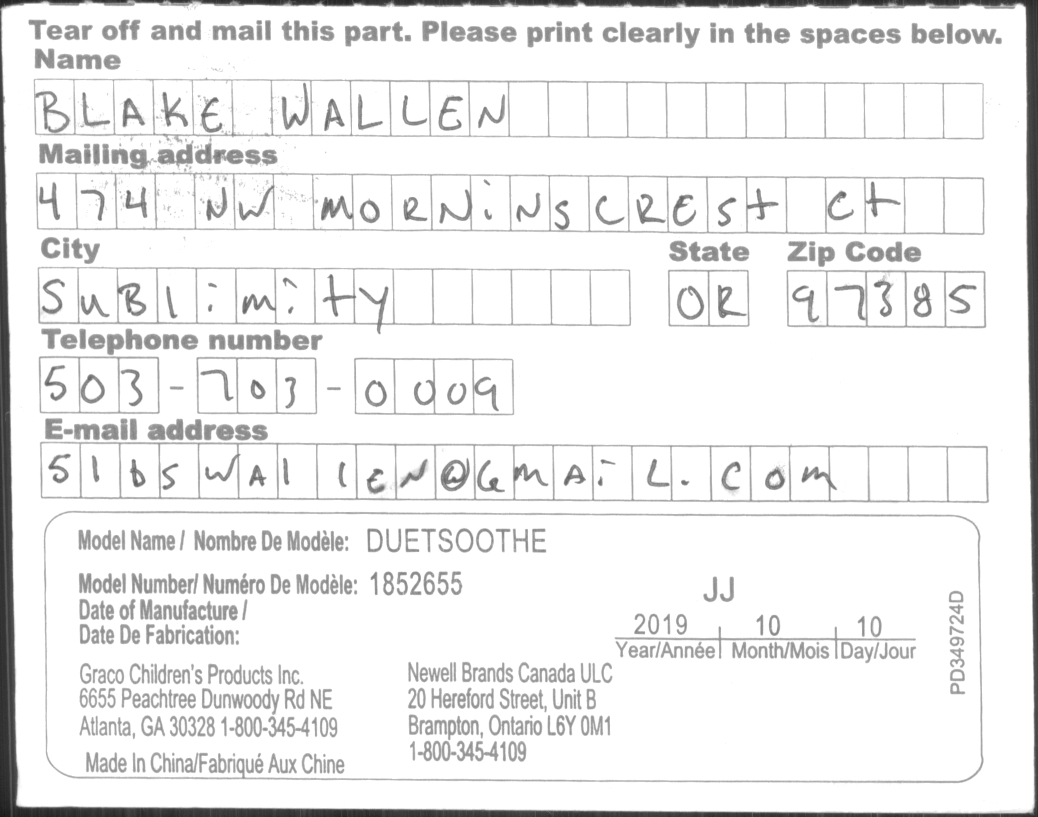 Tear off and mail this part. Please print clearly in the spaces below.
Name
BLAKE WALLEN
Mailing address
474 NW MORNiNSCREST Ct
City State Zip Code
SuBlimity OR 97385
Telephone number
503-703-0009
E-mail address
51bswAllEN@GMAiL.COM
Model Name / Nombre De Modèle: DUETSOOTHE
Model Number/ Numéro De Modèle: 1852655
Date of Manufacture /
Date De Fabrication:
JJ
2019 10 10
Year/Année Month/Mois Day/Jour
PD349724D
Graco Children's Products Inc.
6655 Peachtree Dunwoody Rd NE
Atlanta, GA 30328 1-800-345-4109
Made In China/Fabriqué Aux Chine
Newell Brands Canada ULC
20 Hereford Street, Unit B
Brampton, Ontario L6Y 0M1
1-800-345-4109